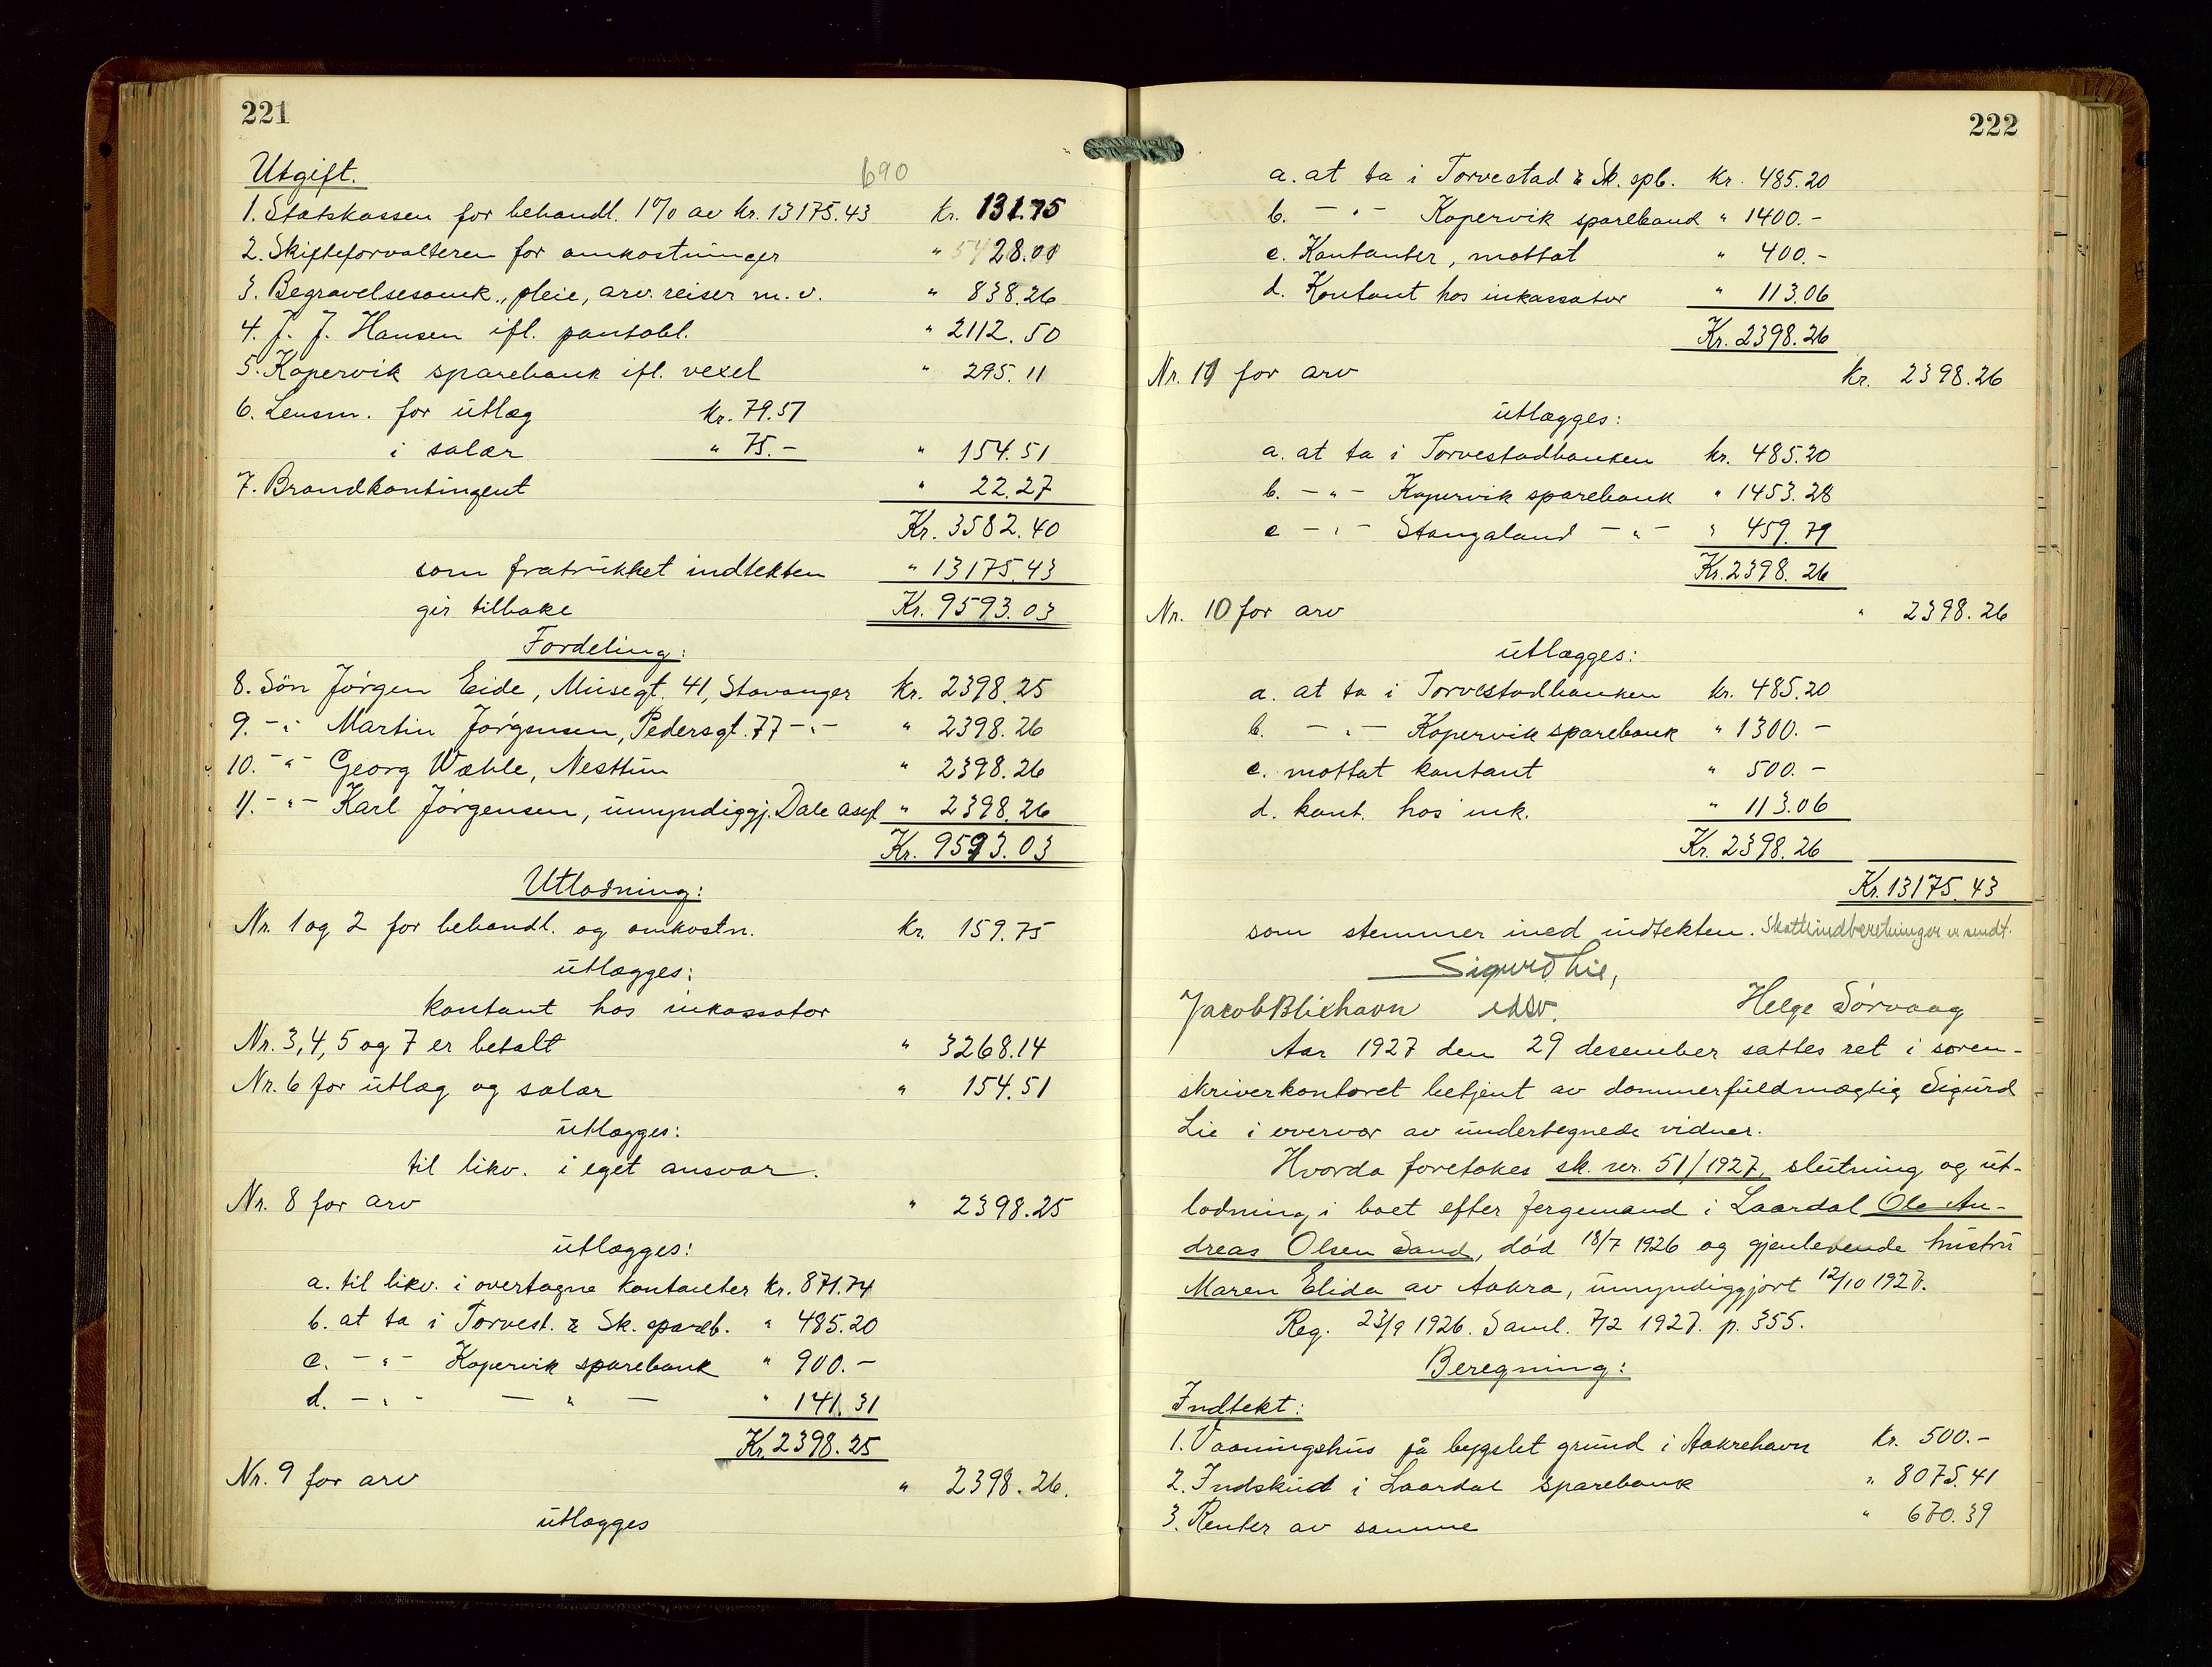 221
Utgift.
690
1. Statskassen for behandl. 1% av kr. 13175.43 kr. 131.75
2. Skifteforvalteren for omkostninger " 28.00
3. Begravelsesomk., pleie, arv. reiser m. v. " 838.26
4. J. J. Hansen ifl. pantobl. " 2112.50
5. Kopervik sparebank ifl. vexel " 295.11
6. Lensm. for utlæg kr. 79.51
i salær " 75.- " 154.51
7. Brandkontingent " 22.27
Kr. 3582.40
som fratrukket indtekten " 13175.43
gir tilbake Kr. 9593.03
Fordeling:
8. Søn Jørgen Eide, Musegt. 41, Stavanger Kr. 2398.25
9. -"- Martin Jørgensen, Pedersgt. 77 -"- " 2398.26
10. -"- Georg Wæhle, Nesttun " 2398.26
11. -"- Karl Jørgensen, umyndiggj. Dale asyl " 2398.26
Kr. 9593.03
Utlodning:
Nr. 1 og 2 for behandl. og omkostn. Kr. 159.75
utlægges:
kontant hos inkassator
Nr. 3, 4, 5 og 7 er betalt " 3268.14
Nr. 6 for utlæg og salær " 154.51
utlægges:
til likv. i eget ansvar.
Nr. 8 for arv " 2398.25
utlægges:
a. til likv. i overtagne kontanter kr. 871.74
b. at ta i Torvest. & Sk. spareb. " 485.20
c. -"- Kopervik sparebank " 900.-
d. -"- - " - " 141.31
Kr. 2398.25
Nr. 9 for arv " 2398.26.
utlægges
222
a. at ta i Torvestad & Sk. spb. kr. 485.20
b. -"- Kopervik sparebank " 1400.-
c. Kontanter, mottat " 400.-
d. Kontant hos inkassator " 113.06
Kr. 2398.26
Nr. 11 for arv kr. 2398.26
utlægges:
a. at ta i Torvestadbanken kr. 485.20
b. -"- Kopervik sparebank " 1453.28
c -"- Stangaland -"- " 459.79
Kr. 2398.26
Nr. 10 for arv " 2398.26
utlægges:
a. at ta i Torvestadbanken kr. 485.20
b. -"- Kopervik sparebank " 1300.-
c. mottat kontant " 500.-
d. kont. hos ink. " 113.06
Kr. 2398.26
Kr. 13175.43
som stemmer med indtekten. Skatteindberetninger er sendt.
Sigurd Lie,
Jacob Blixhavn Helge Sørvaag
Aar 1927 den 29 desember sattes ret i soren-
skriverkontoret betjent av dommerfuldmægtig Sigurd
Lie i overvær av undertegnede vidner.
Hvorda foretokes sk. nr. 51/1927, slutning og ut-
lodning i boet efter fergemand i Laardal Ole An-
dreas Olsen Sand, død 18/7 1926 og gjenlevende hustru
Maren Elida av Aakra, umyndiggjort 12/10 1927.
Reg. 23/9 1926. Saml. 7/2 1927. p. 355.
Beregning:
Indtekt:
1. Vaaningshus på bygslet grund i Aakrehavn kr. 500.-
2. Indskud i Laardal sparebank " 8075.41
3. Renter av samme " 670.39